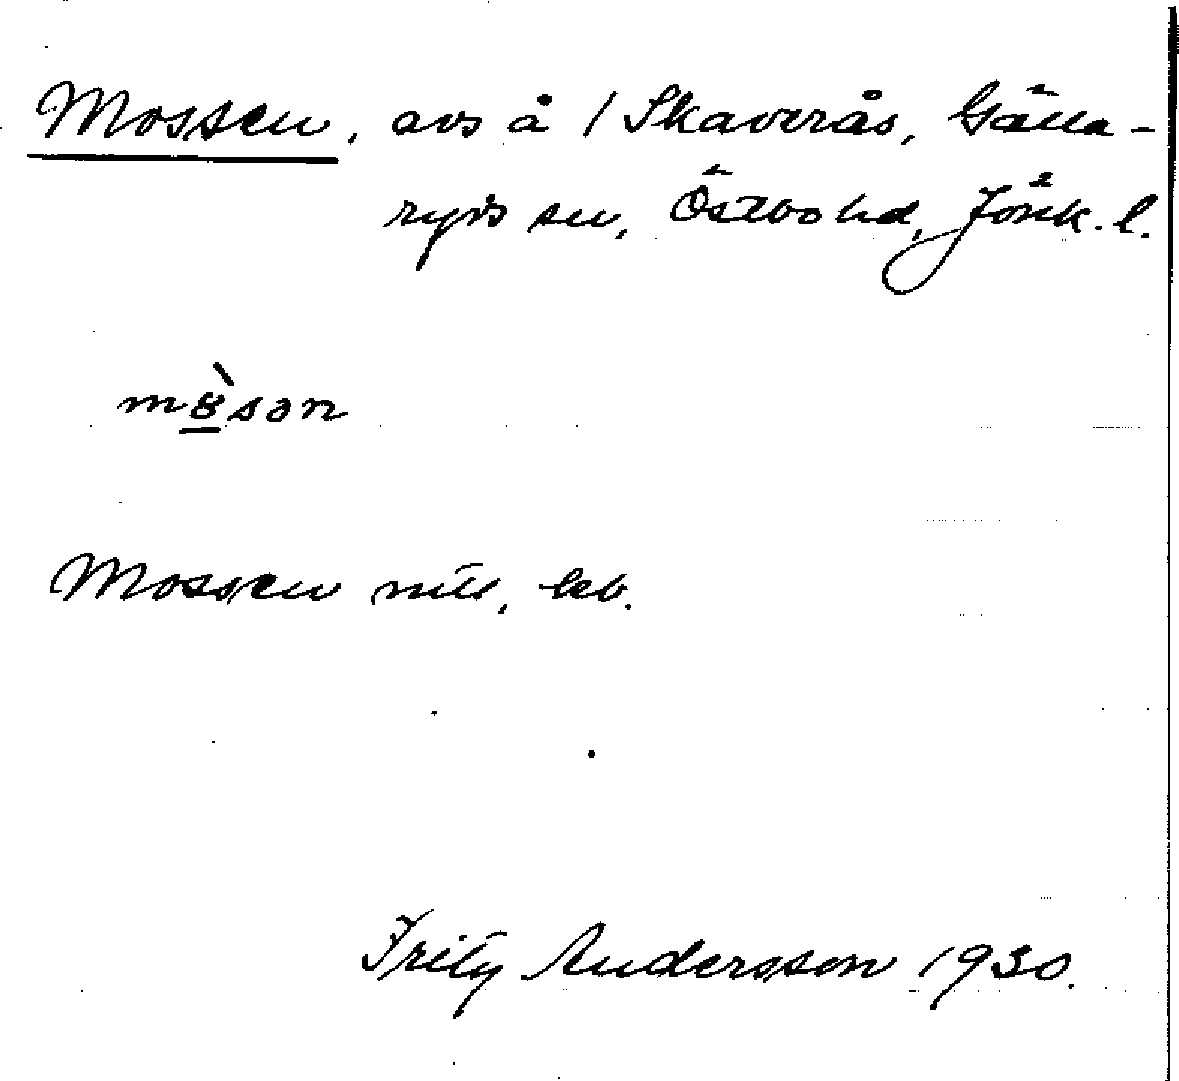 Mossen, avs å 1 Skaverås, Gälla-
ryds sn, Östbo hd, Jönk. l.
mò̱sən
Mossen mtl, leb.
Fritz Andersson 1930.